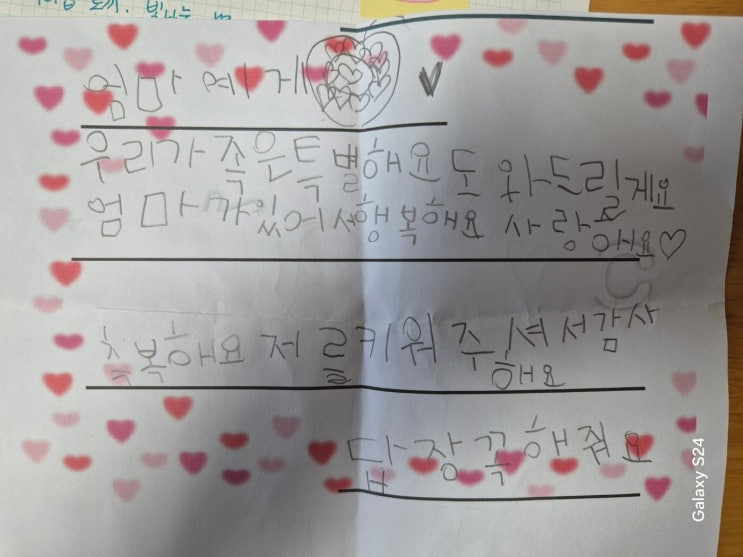 엄마 에게
우리가 족은 특별해요 도와드릴게요
엄마가 있어서 행복해요 사랑해요♡
축복해요 저를 키워 주셔서 감사
해요
답장 꼭 해줘요
Galaxy S24